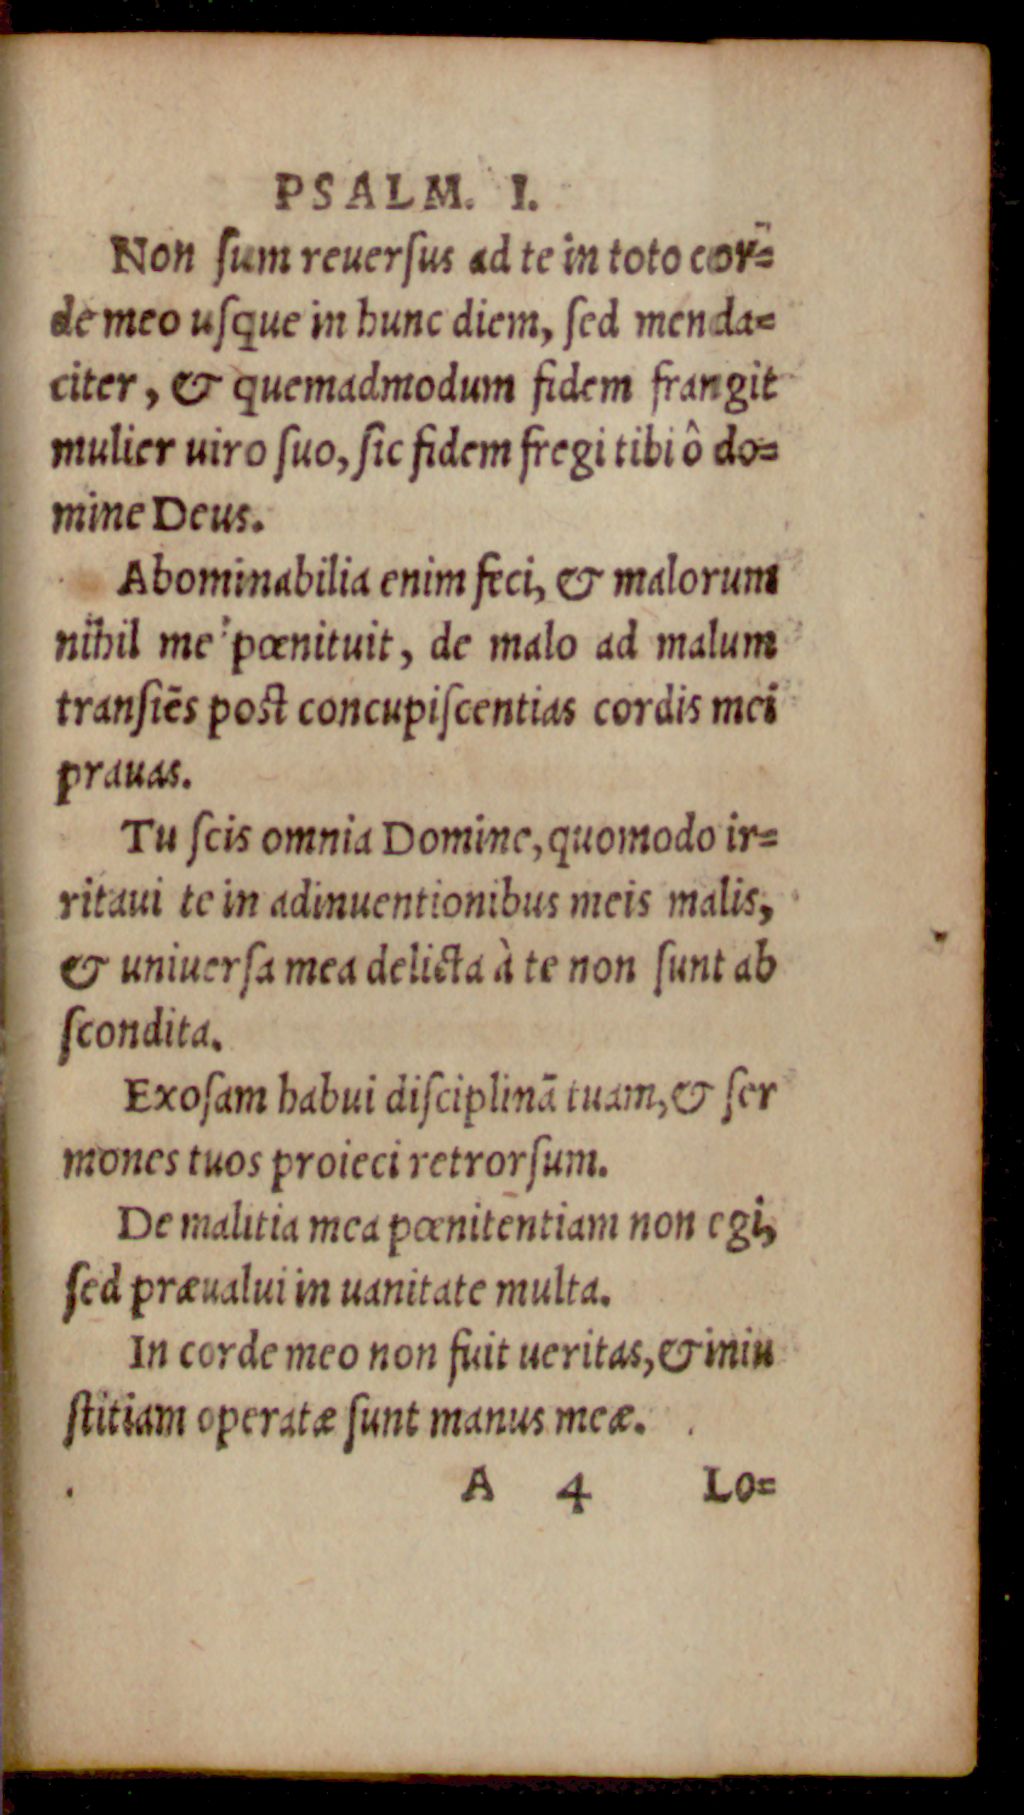 PSALM. I.
Non ſum reuerſus ad te in toto cor⸗
de meo uſque in hunc diem, ſed menda⸗
citer, & quemadmodum fidem frangit
mulier uiro ſuo, ſic fidem fregi tibi ô do⸗
mine Deus.
Abominabilia enim feci, & malorum
nihil me pœnituit, de malo ad malum
tranſiẽs poſt concupiſcentias cordis mei
prauas.
Tu ſcis omnia Domine, quomodo ir⸗
ritaui te in adinuentionibus meis malis,
& uniuerſa mea delicta à te non ſunt ab
ſcondita.
Exoſam habui diſciplinã tuam, & ſer
mones tuos proieci retrorſum.
De malitia mea pœnitentiam non egi,
ſed præualui in uanitate multa.
In corde meo non fuit ueritas, & iniu
ſtitiam operatæ ſunt manus meæ.
A 4 Lo⸗